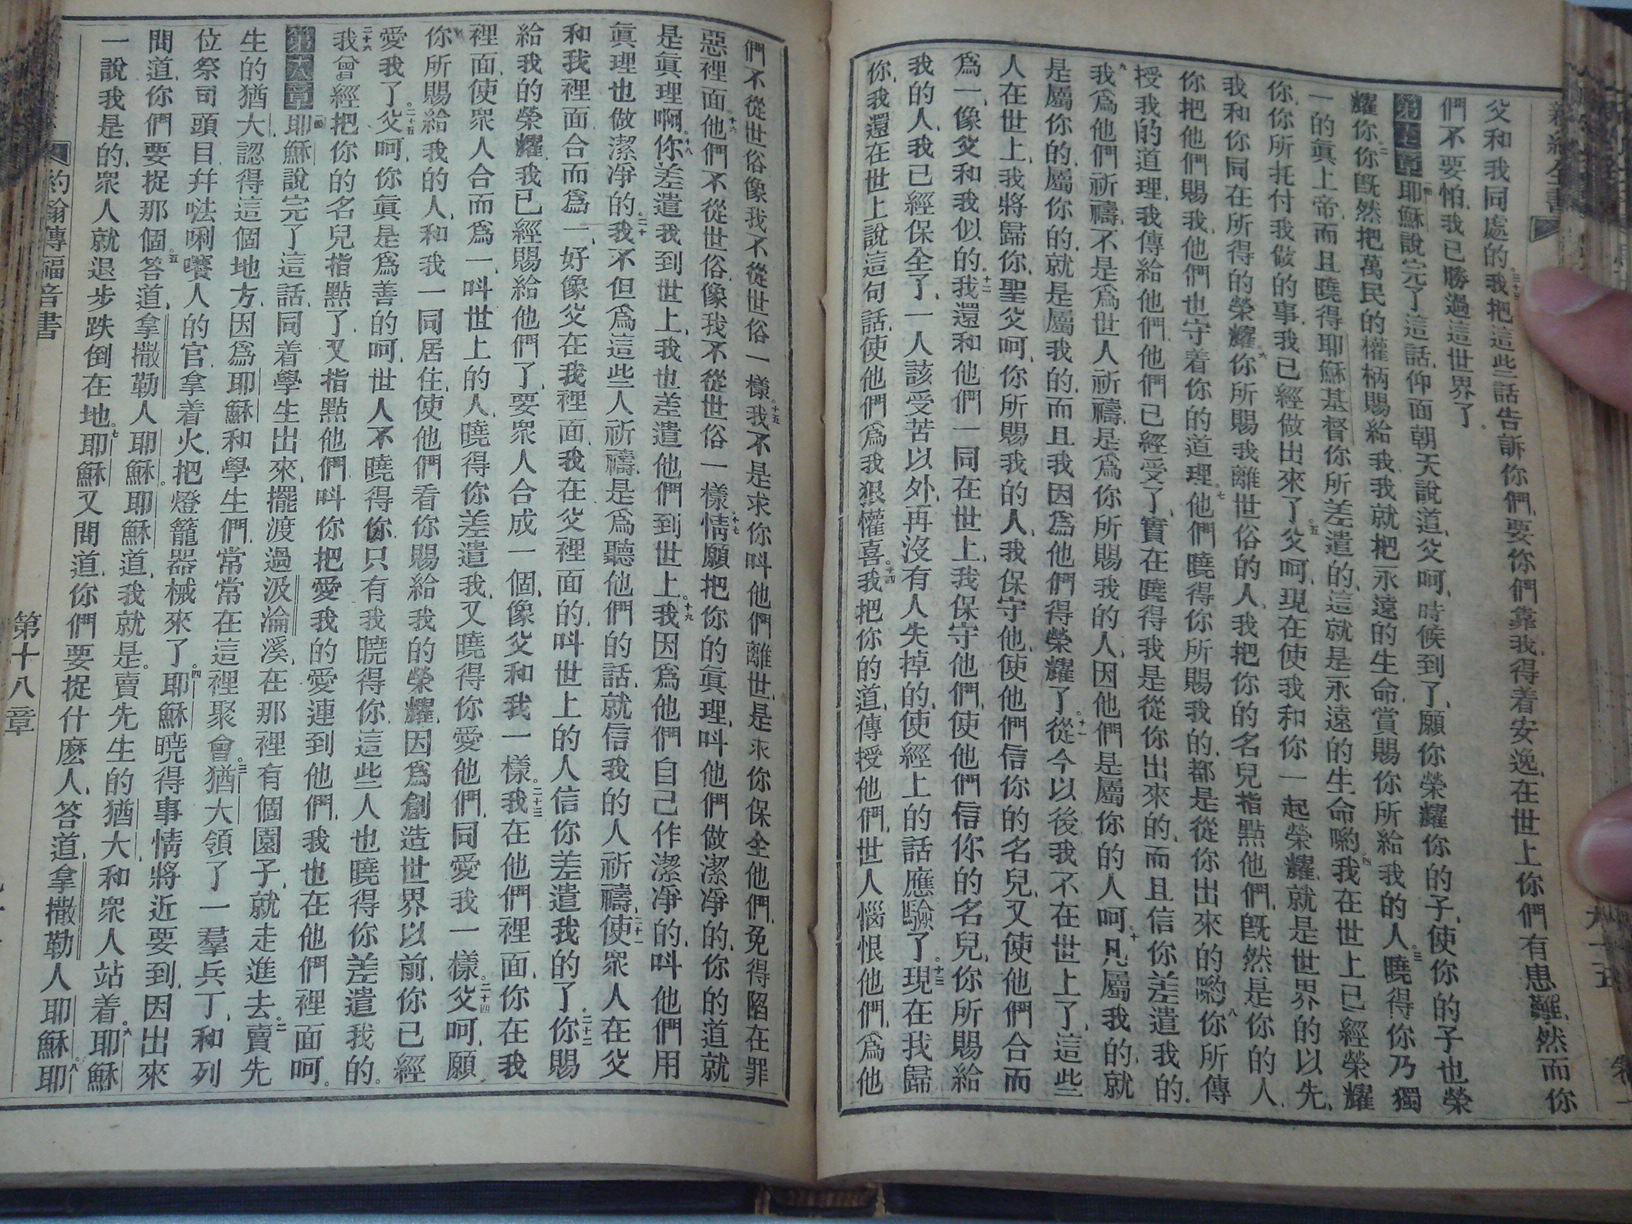 新約全書
父和我同處的我把這些話告訴你們要你們靠我得着安逸在世上你們有患難然而你
們不要怕我已勝過這世界了
第十七章耶穌說完了這話仰面朝天說道父呵時候到了願你榮耀你的子使你的子也榮
耀你你既然把萬民的權柄賜給我我就把永遠的生命賞賜你所給我的人曉得你乃獨
一的眞上帝而且曉得耶穌基督你所差遣的這就是永遠的生命喲我在世上已經榮耀
你你所托付我做的事我已經做出來了父呵現在使我和你一起榮耀就是世界的以先
我和你同在所得的榮耀你所賜我離世俗的人我把你的名兒指點他們既然是你的人
你把他們賜我他們也守着你的道理他們曉得你所賜我的都是從你出來的喲你所傳
授我的道理我傳給他們他們已經受了實在曉得我是從你出來的而且信你差遣我的
我爲他們祈禱不是爲世人祈禱是爲你所賜我的人因他們是屬你的人呵凡屬我的就
是屬你的屬你的就是屬我的而且我因爲他們得榮耀了從今以後我不在世上了這些
人在世上我將歸你聖父呵你所賜我的人我保守他使他們信你的名兒又使他們合而
爲一像父和我似的我還和他們一同在世上我保守他們使他們信你的名兒你所賜給
我的人我已經保全了一人該受苦以外再沒有人失掉的使經上的話應驗了現在我歸
你我還在世上說這句話使他們爲我狠懽喜我把你的道傳授他們世人惱恨他們爲他
們不從世俗像我不從世俗一樣我不是求你呌他們離世是求你保全他們免得陷在罪
惡裡面他們不從世俗像我不從世俗一樣情願把你的眞理呌他們做潔淨的你的道就
是眞理啊你差遣我到世上我也差遣他們到世上我因爲他們自己作潔淨的呌他們用
眞理也做潔淨的我不但爲這些人祈禱是爲聽他們的話就信我的人祈禱使衆人在父
和我裡面合而爲一好像父在我裡面我在父裡面的呌世上的人信你差遣我的了你賜
給我的榮耀我已經賜給他們了要衆人合成一個像父和我一樣我在他們裡面你在我
裡面使衆人合而爲一呌世上的人曉得你差遣我又曉得你愛他們同愛我一樣父呵願
你所賜給我的人和我一同居住使他們看你賜給我的榮耀因爲創造世界以前你已經
愛我了父呵你眞是爲善的呵世人不曉得你只有我曉得你這些人也曉得你差遣我的
我曾經把你的名兒指點了又指點他們呌你把愛我的愛連到他們我也在他們裡面呵
第十八章耶穌說完了這話同着學生出來擺渡過汲淪溪在那裡有個園子就走進去賣先
生的猶大認得這個地方因爲耶穌和學生們常常在這裡聚會猶大領了一羣兵丁和列
位祭司頭目幷㳒唎㘔人的官拿着火把燈籠器械來了耶穌曉得事情將近要到因出來
問道你們要捉那個答道拿撒勒人耶穌耶穌道我就是賣先生的猶大和衆人站着耶穌
一說我是的衆人就退步跌倒在地耶穌又問道你們要捉什麽人答道拿撒勒人耶穌耶
約翰傳福音書
第十八章